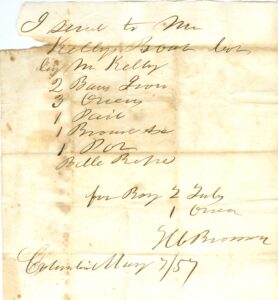 I send to Mr
Kelly's Boat
by Mr Kelly
2 Bars Iron
3 Ovens
1 Pail
1 Broad Ax
1 Pot
Belle Rope
for Boy 2 Tubs
1 Oven
Bronson
Columbia May 7/57